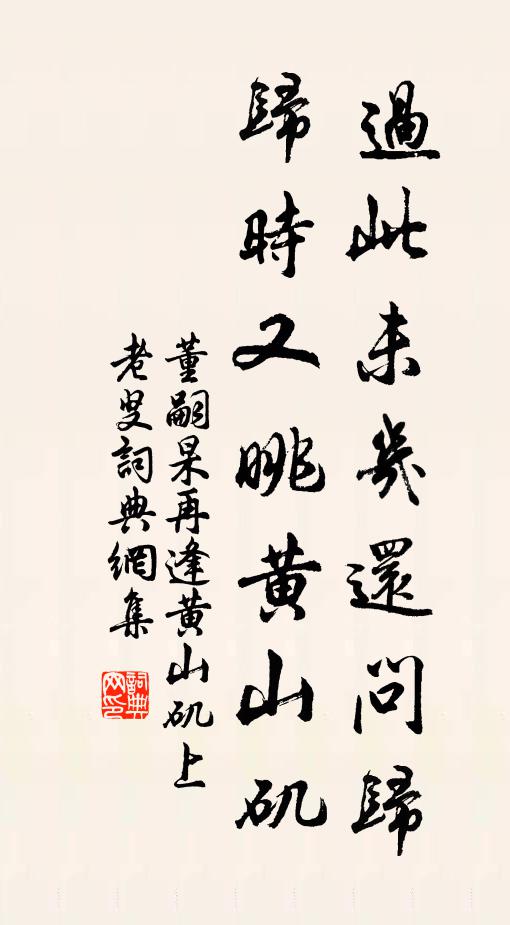 過此未幾還問歸
歸時又眺黃山矶
董嗣杲再逢黃山矶上
老叟詞典網集
詞典网印